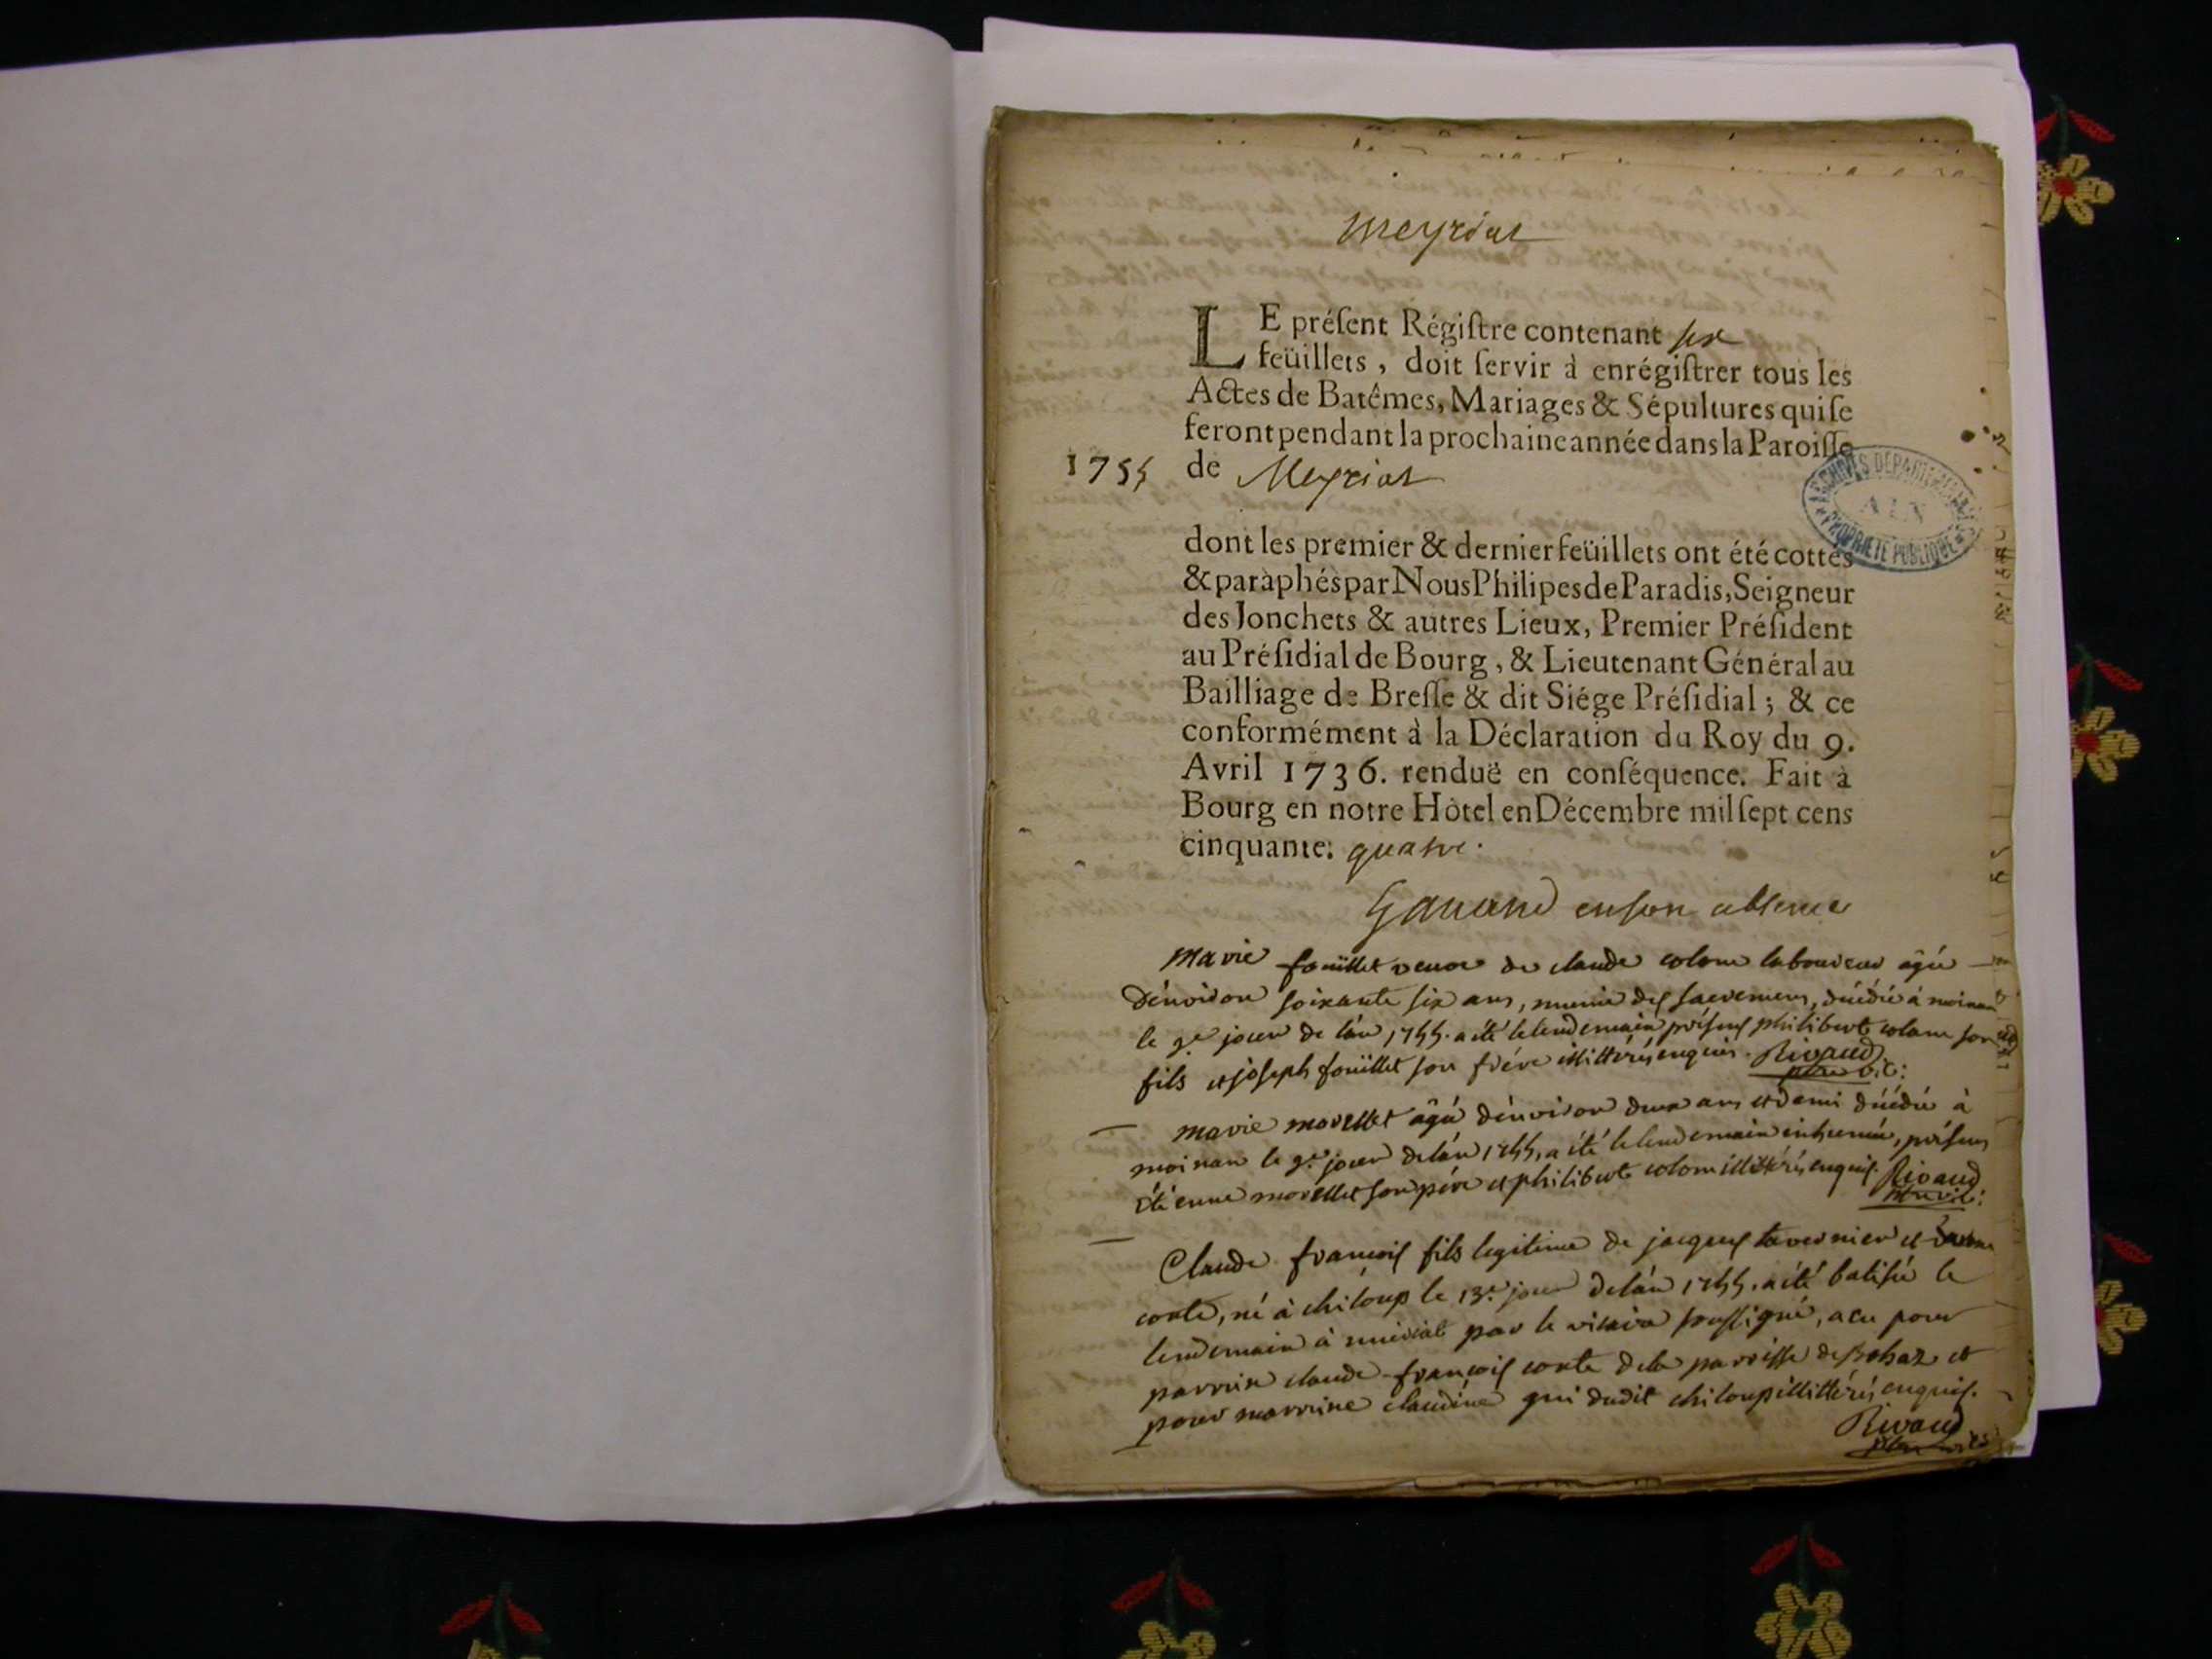 Meyriat
LE préſent Régiſtre contenant six
feüillets, doit ſervir à enrégiſtrer tous les
Actes de Batêmes, Mariages & Sépultures qui ſe
feront pendant la prochaine année dans la Paroiſſe
1755 de Meyriat
ARCHIVES DÉPARTEMENTALES
AIN
PROPRIÉTÉ PUBLIQUE
dont les premier & dernier feüillets ont été cottés
& paraphés par Nous Philipes de Paradis, Seigneur
des Jonchets & autres Lieux, Premier Préſident
au Préſidial de Bourg, & Lieutenant Général au
Bailliage de Breſſe & dit Siége Préſidial; & ce
conformément à la Déclaration du Roy du 9.
Avril 1736. renduë en conſéquence. Fait à
Bourg en notre Hôtel en Décembre mil ſept cens
cinquante. quatre.
en son absence
marie fouillet veuve de claude colom laboureur âgée
dénviron soixante six ans, munie des sacremens, décédée à moinan
le 9e jour de l'án 1755. a été le lendemain présens philibert colom son
fils et joseph fouillet son frére illittérés enquis. Rivaud
ptre vic:
marie morellet âgée dénviron deux ans et demi décédée à
moinan le 9e jour de l'án 1755, a été le lendemain inhumée, présens
étienne morellet son pére et philibert colom illittérés enquis. Rivaud
ptre vic:
Claude françois fils legitime de jacques tavernier et
conte, né à chiloup le 13e jour de l'án 1755. a été batisée le
lendemain à meiriat par le vicaire soussigné, a eu pour
parrein claude-françois conte de la parroisse de Bohaz et
pour marreine claudine gui dudit chiloup illittérés enquis.
Rivaud
ptre vic: